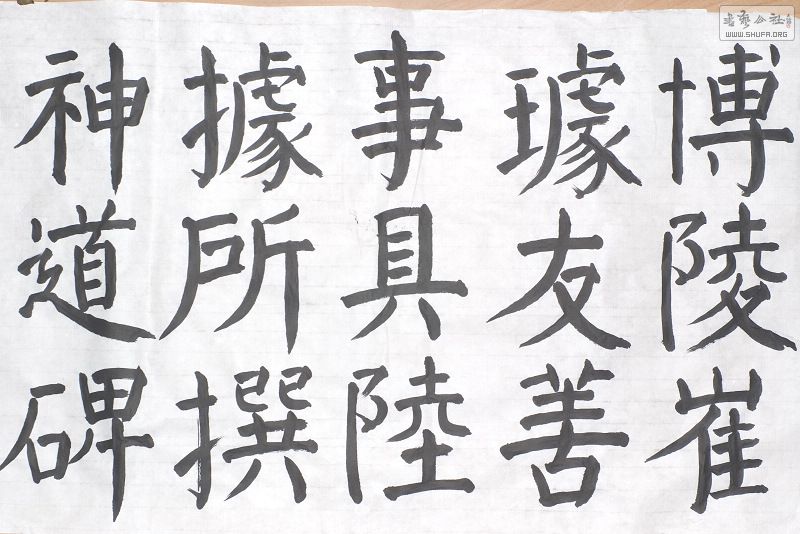 博陵崔
璩友善
事具陸
據所撰
神道碑
WWW.SHUFA.ORG